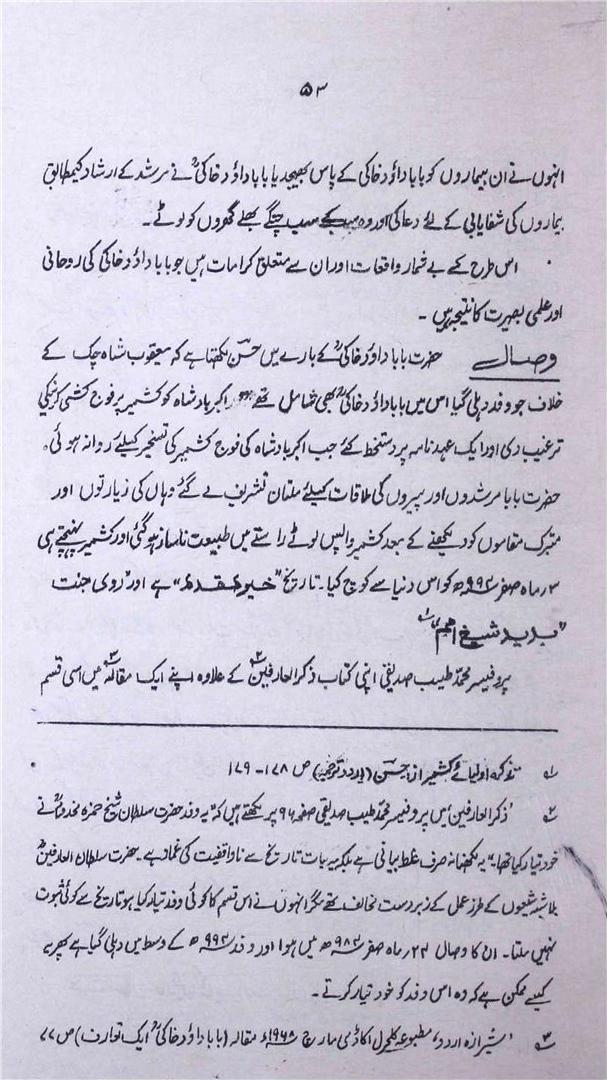 ۵۳
انہوں نے ان بیماروں کو بابا داؤد خاکی کے پاس بھیجدیا بابا داؤد خاکیؒ نے مرشد کے ارشاد کیمطابق
بیماروں کی شفایابی کے لئے دعا کی اور وہ سب چنگے بھلے گھروں کو لوٹے۔
اس طرح کے بے شمار واقعات اور ان سے متعلق کرامات ہیں جو بابا داؤد خاکیؒ کی روحانی
اور علمی بصیرت کا نتیجہ ہیں۔
وصال حضرت بابا داؤد خاکیؒ کے بارے میں حسنؔ لکھتا ہے کہ یعقوب شاہ چک کے
خلاف جو وفد دہلی گیا اس میں بابا داؤد خاکیؒ بھی شامل تھے اکبر بادشاہ کو کشمیر پر فوج کشی کرنیکی
ترغیب دی اور ایک عہد نامہ پر دستخط کئے جب اکبر بادشاہ کی فوج کشمیر کی تسخیر کیلئے روانہ ہوئی،
حضرت بابا مرشدوں اور پیروں کی ملاقات کیلئے ملتان تشریف لے گئے وہاں کی زیارتوں اور
متبرک مقاموں کو دیکھنے کے بعد کشمیر واپس لوٹے راستے میں طبیعت ناساز ہو گئی اور کشمیر پہنچتے ہی
۳ ماہ صفر ۹۹۴ھ کو اس دنیا سے کوچ کیا۔ تاریخ "خیر مقدم" ہے اور "روی جنت
بدید شیخ امم"۱
پروفیسر محمد طیب صدیقی اپنی کتاب ذکر العارفین۲ کے علاوہ اپنے ایک مقالہ۳ میں اسی قسم
۱ تذکرہ اولیائے کشمیر از حسنؔ (اردو ترجمہ) ص ۱۷۸-۱۷۹
۲ 'ذکر العارفین' میں پروفیسر محمد طیب صدیقی صفحہ ۹۶ پر لکھتے ہیں کہ "یہ وفد حضرت سلطان شیخ حمزہ مخدومؒ نے
خود تیار کیا تھا۔" یہ لکھنا نہ صرف غلط بیانی ہے بلکہ یہ بات تاریخ سے ناواقفیت کی غماز ہے۔ حضرت سلطان العارفینؒ
بلاشبہ شیعوں کے طرز عمل کے زبردست مخالف تھے مگر انہوں نے اس قسم کا کوئی وفد تیار کیا ہو تاریخ سے کوئی ثبوت
نہیں ملتا۔ ان کا وصال ۲۴ ماہ صفر ۹۸۴ھ میں ہوا اور وفد ۹۹۳ھ کے وسط میں دہلی گیا ہے پھر یہ
کیسے ممکن ہے کہ وہ اس وفد کو خود تیار کرتے۔
۳ 'شیرازہ اردو' مطبوعہ کلچرل اکاڈمی مارچ ۱۹۶۸ء مقالہ (بابا داؤد خاکیؒ ایک تعارف) ص ۷۷